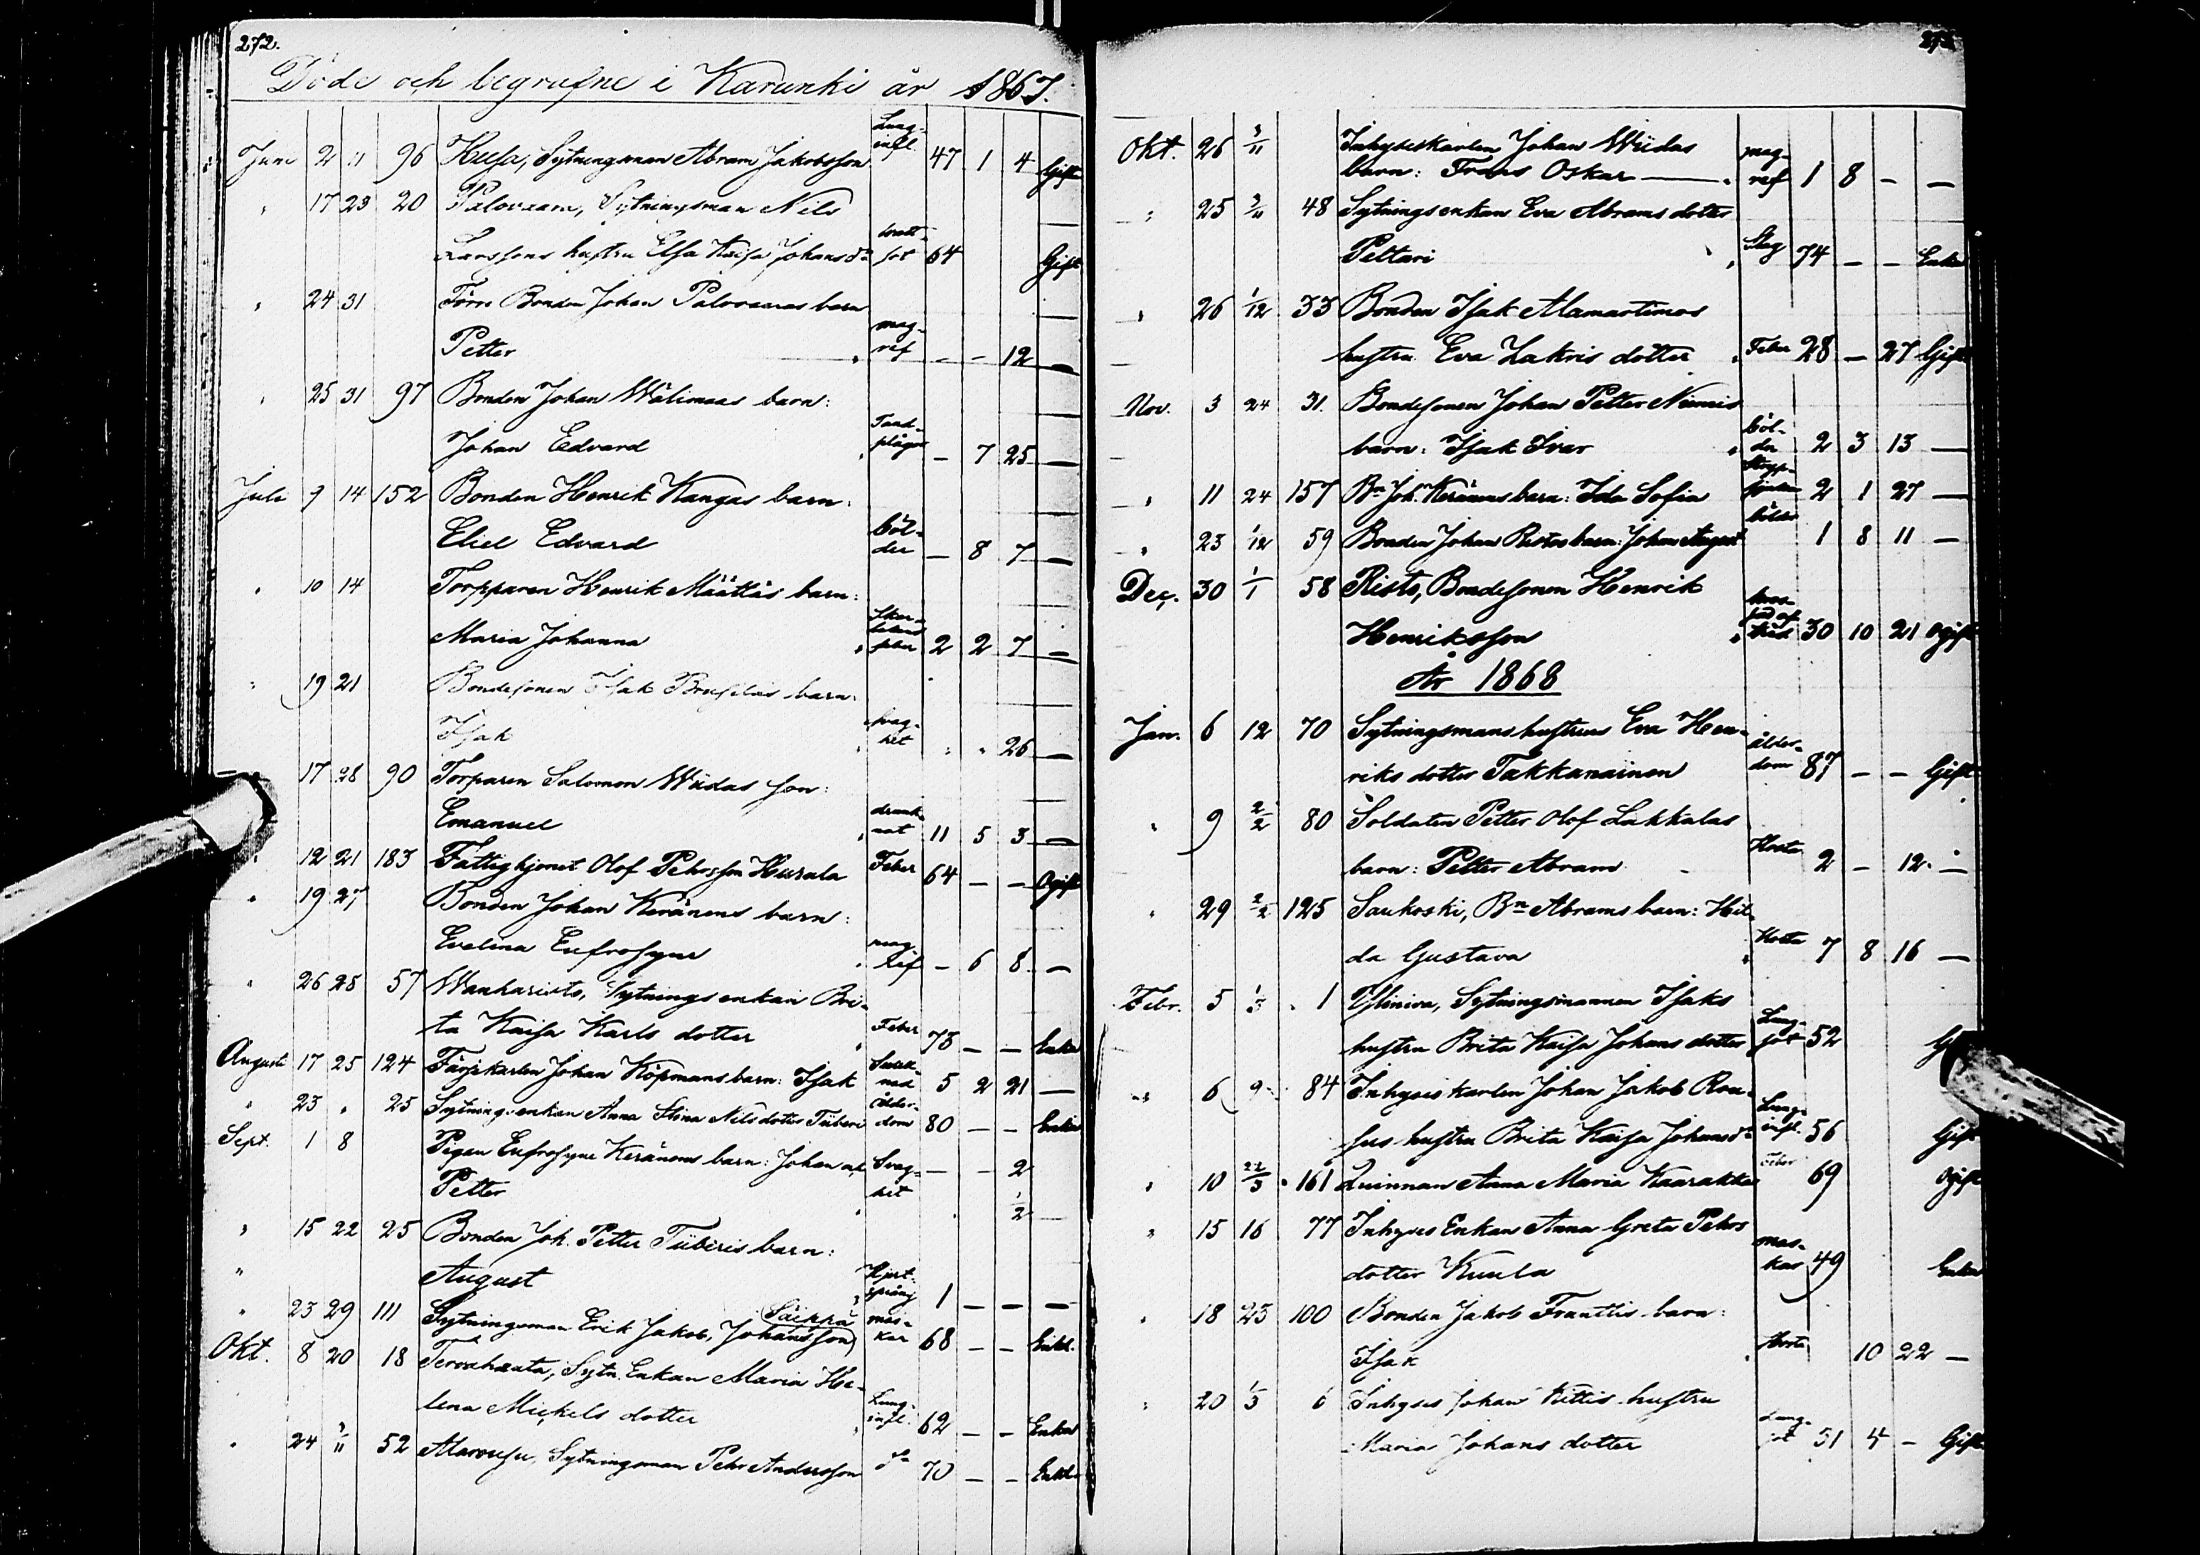 272.
Döde och begrafne i Karunki år 1867.
Juni 2 11 96 Husa, Sytningsman Abram Jakobsson Lung- infl. 47 1 4 Gift
" 17 23 20 Palovaara, Sytningsman Nils
Larssons hustru Elsa Kaisa Johansdr sot 64 Gift
" 24 31 Förre Bonden Johan Palovaaras barn
Petter mag- ref - - 12 -
" 25 31 97 Bonden Johan Wälimaas barn:
Johan Edvard Tand- plågor - 7 25 -
Juli 9 14 152 Bonden Henrik Kangas barn:
Eliel Edvard böl- der - 8 7 -
" 10 14 Torpparen Henrik Määttäs barn:
Maria Johanna 2 2 7 -
" 19 21 Bondesonen Isak barn:
Isak svag- het " " 26 -
17 28 90 Torparen Salomon Wiidas son:
Emanuel drunk- nat 11 5 3 -
" 12 21 183 Fattighjonet Olof Pehrsson Hurula Feber 64 - - Ogift
" 19 27 Bonden Johan Keränens barn:
Evelina Eufrosyne mag- ref - 6 8 -
" 26 28 57 Wanharisto, Sytningsenkan Bri-
ta Kaisa Karls dotter Feber 73 - - Enka
Augusti 17 25 124 Färjekarlen Johan Köpmans barn: Isak 5 2 21 -
" 23 " 25 Sytningsenkan Anna Stina Nilsdotter Tiiberi ålder- dom 80 - - Enka
Sept. 1 8 Pigan Eufrosyne Keränens barn: Johan och Svag- - - 2
Petter het 1/2 -
" 15 22 25 Bonden Joh. Petter Tiiberis barn:
" August Hjert- språng 1 - - -
Säippä
" 23 29 111 Sytningsman Erik Jakob, Johansson mas- kar 68 - - Enkl.
Okt. 8 20 18 Tervahauta, Sytn. Enkan Maria He-
lena Mickels dotter Lung- infl. 62 - - Enka
" 24 3/11 52 Alavuisu, Sytningsman Pehr Andersson do 70 - - Enkl.
Okt. 26 3/11 Inhyseskarlen Johan Wiidas
barn: Frans Oskar mag- ref 1 8 - -
" 25 3/11 48 Sytningsenkan Eva Abrams dotter
Peltari Slag 74 - - Enka
" 26 1/12 33 Bonden Isak Alamartimos
hustru Eva Zakris dotter Feber 28 - 27 Gift
Nov. 3 24 31 Bondesonen Johan Petter Niemis
barn: Isak Ivar böl- der 2 3 13 -
" 11 24 157 Bn Joh. Keränens barn: Ida Sofia 2 1 27 -
" 23 1/12 59 Bonden Johan Ristos barn: Johan August bölder 1 8 11 -
Dec. 30 1/1 58 Risto, Bondesonen Henrik
Henriksson 30 10 21 ogift
År 1868
Jan. 6 12 70 Sytningsmans hustrun Eva Hen-
riks dotter Takkunainen ålder- dom 87 - - Gift
" 9 2/2 80 Soldaten Petter Olof Lakkalas
barn: Petter Abram Hosta 2 - 12 -
" 29 2/2 125 Saukoski, Bn Abrams barn: Hil-
da Gustava Hosta 7 8 16 -
Febr. 5 1/3 1 Yliniva, Sytningsmannen Isaks
hustru Brita Kaisa Johans dotter Lung- sot 52
" 6 9 84 Inhyses karlen Johan Jakob Rou-
sus hustru Brita Kaisa Johansdr Lung- infl. 56 Gift
" 10 22/3 161 Quinnan Anna Maria Kaarakka Feber 69 ogift
" 15 16 77 Inhyses Enkan Anna Greta Pehrs
dotter Kuula mas- kar 49 Enka
" 18 23 100 Bonden Jakob Franttis barn:
Isak Hosta 10 22 -
" 20 1/3 6 Inhyses Johan Kittis hustru
Maria Johans dotter Lung- sot 51 4 - Gift